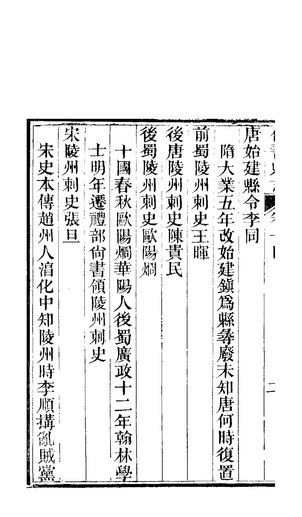 唐始建縣令李同
隋大業五年改始建鎮爲縣尋廢未知唐何時復置
前蜀陵州刺史王暉
後唐陵州刺史陳貴民
後蜀陵州刺史歐陽烱
十國春秋歐陽烱華陽人後蜀廣政十二年翰林學
士明年遷禮部尙書領陵州刺史
宋陵州刺史張旦
宋史本傳趙州人淯化中知陵州時李順搆亂賊黨
二